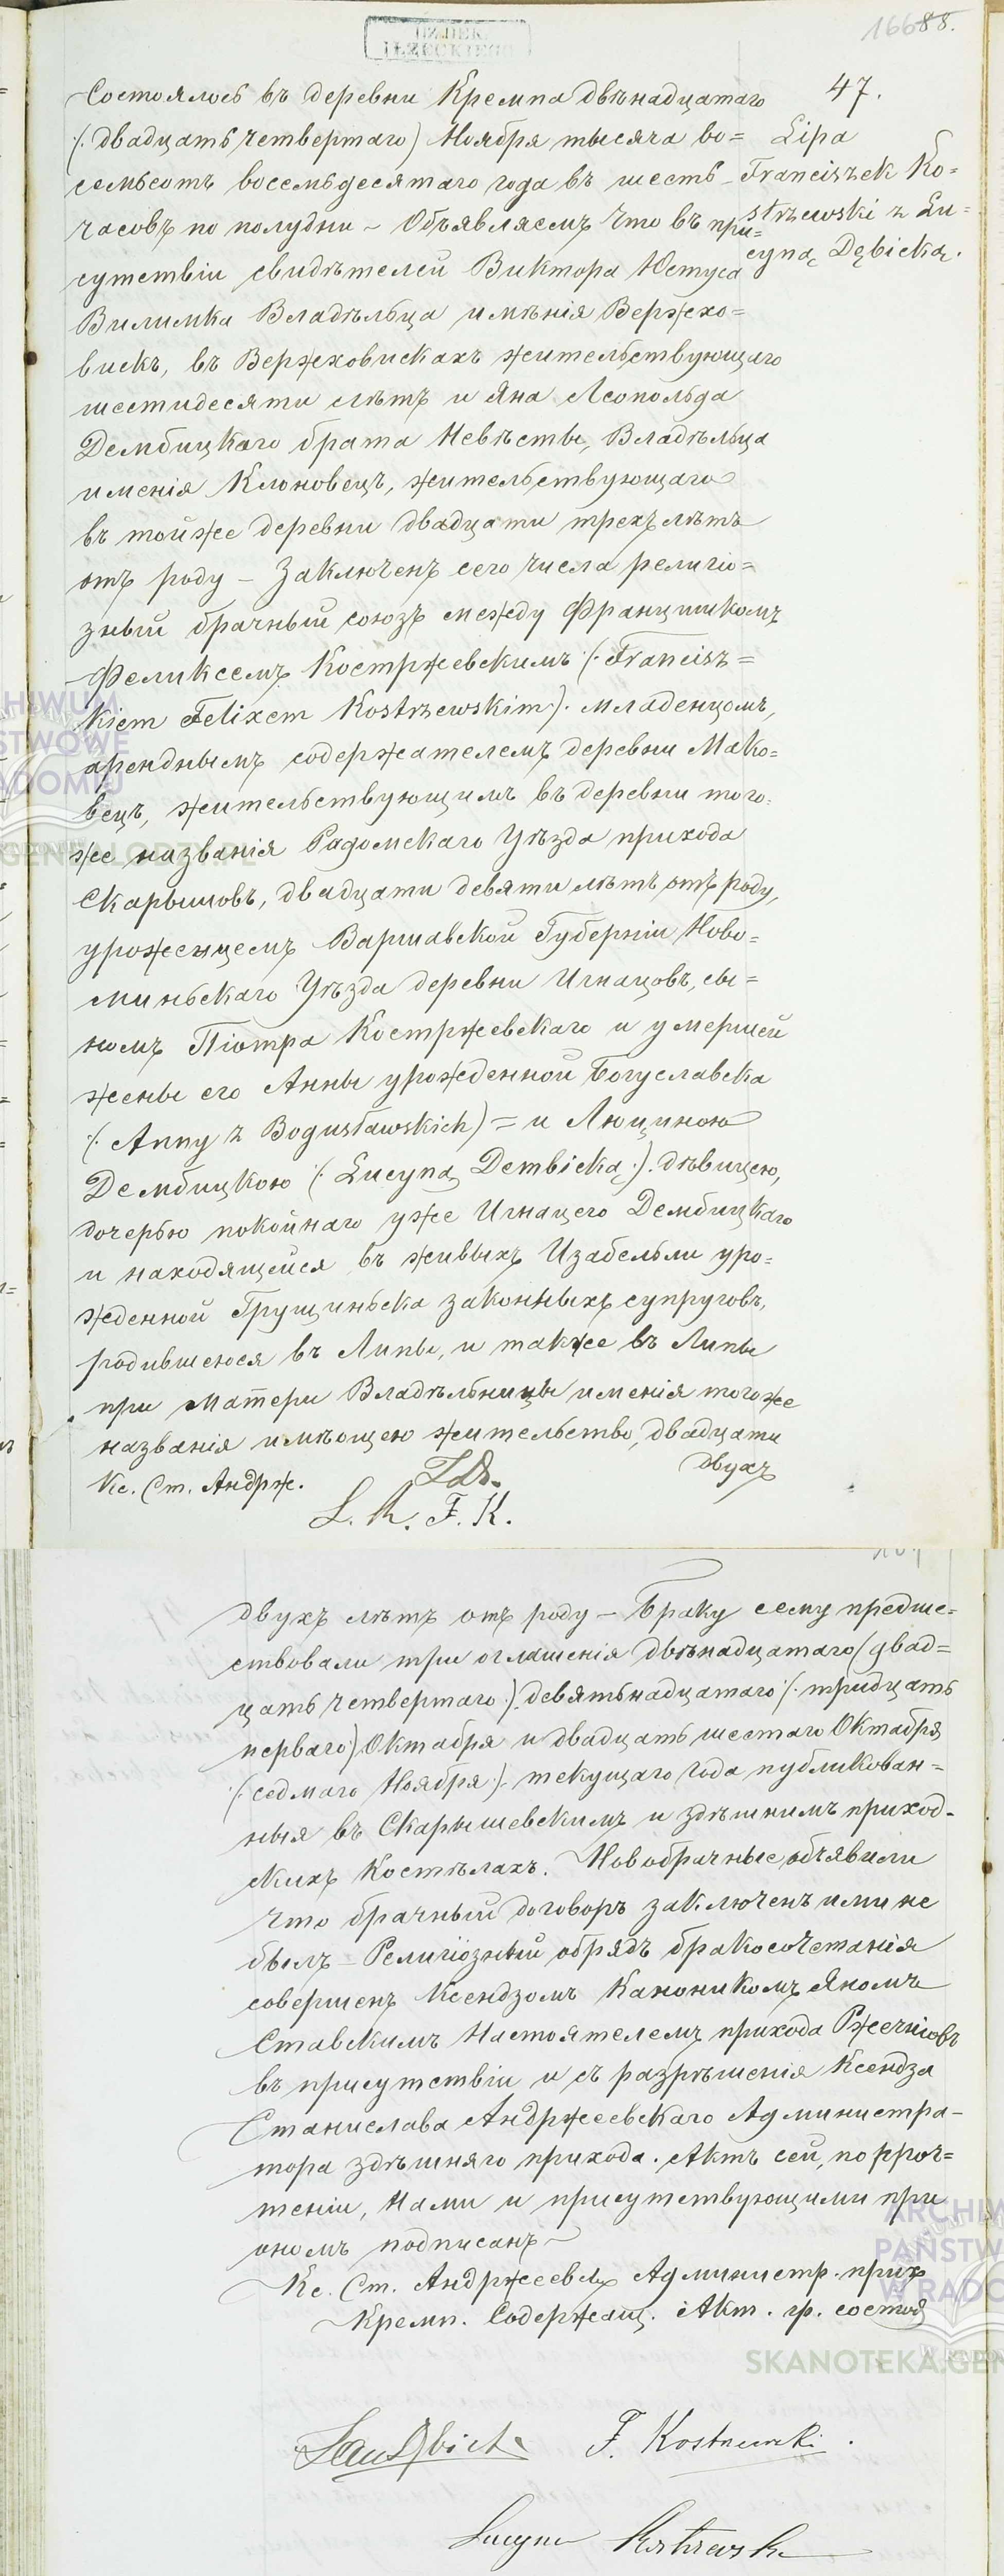 UZ.DEK.
IŁŻECKIEGO
16688.
47.
Lipa
Franciszek Ko=
strzewski z Lu=
cyną Dębicką.
Состоялось въ деревни Кремпа двѣнадцатаго
(двадцать четвертаго) Ноября тысяча во=
семьсотъ восемьдесятаго года въ шесть
часовъ по полудни – Объявляемъ что въ при=
сутствіи свидѣтелей Виктора Юстуса
Вилимка Владѣльца имѣнія Вержхо=
вискъ, въ Вержховискахъ жительствующаго
шестидесяти лѣтъ и Яна Леопольда
Дембицкаго брата Невѣсты, Владѣльца
именія Клоновецъ, жительствующаго
въ тойже деревни двадцати трехъ лѣтъ
отъ роду – Заключенъ сего числа религіо=
зный брачный союзъ между Францишкомъ
Феликсемъ Костржевскимъ (Francisz=
kiem Felixem Kostrzewskim). младенцомъ,
аренднымъ содержателемъ деревни Мако=
вецъ, жительствующимъ въ деревни того=
же названія Радомскаго Уѣзда прихода
Скарышовъ, двадцати девяти лѣтъ отъ роду,
уроженцемъ Варшавской Губерніи Ново=
миньскаго Уѣзда деревни Игнацовъ, сы=
номъ Піотра Костржевскаго и умершей
жены его Анны урожденной Богуславска
(Anny z Bogusławskich) = и Люциною
Дембицкою (Lucyną Dembicką). дѣвицею,
дочерью покойнаго уже Игнацего Дембицкаго
и находящейся въ живыхъ Изабельли уро=
жденной Грущиньска законныхъ супруговъ,
родившеюся въ Липы, и также въ Липы
при Матери Владѣльницы именія тогоже
названія имѣющею жительство, двадцати
двухъ
Кс. Ст. Андрж.
L. K. F. K.
двухъ лѣтъ отъ роду – Браку сему предше=
ствовали три оглашенія двѣнадцатаго (двад=
цать четвертаго) девятьнадцатаго (тридцать
перваго) Октабря и двадцать шестаго Октабря
(седмаго Ноября) текущаго года публикован=
ныя въ Скарышевскимъ и здѣшнимъ приход=
скихъ Костѣлахъ. Новобрачные объявили
что брачный договоръ заключенъ ими не
былъ – Религіозный обрядъ бракосочетанія
совершенъ Ксендзомъ Каноникомъ Яномъ
Ставскимъ Настоятелемъ прихода Ржечніовъ
въ присутствіи и съ разрѣшенія Ксендза
Станислава Андржеевскаго Администра=
тора здѣшняго прихода. Актъ сей, по проч=
теніи, Нами и присутствующими при
ономъ подписанъ –
Кс. Ст. Андржеевск Администр. прих
Кремп. Содержащ. Акт. гр. состоя
F. Kostrzewski.
Lucyna Kostrzewska
ARCHIWUM
PAŃSTWOWE
W RADOMIU
SKANOTEKA.GEN